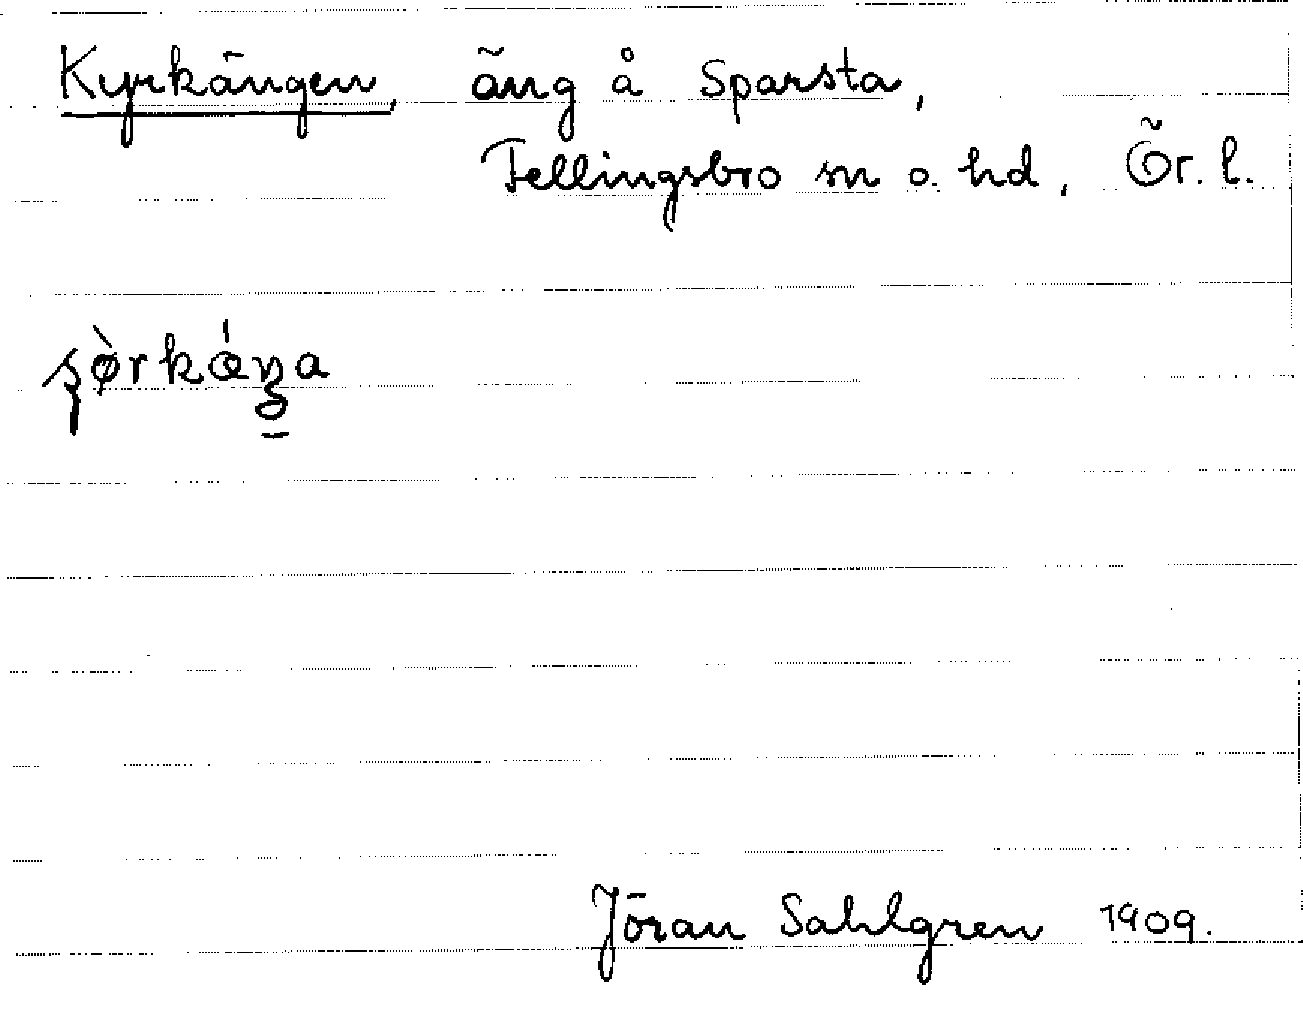 Kyrkängen, äng å Sparsta,
Fellingsbro sn o. hd, Ör. l.
Jöran Sahlgren 1909.